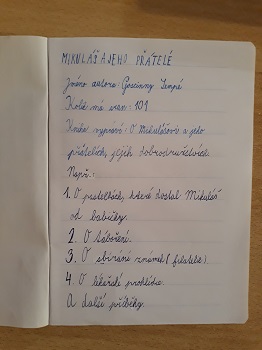 MIKULÁŠ A JEHO PŘÁTELÉ
Jméno autora: Goscinny Sempé
Kolik má stran: 101
Kniha vypráví: O Mikulášovi a jeho
přátelích, jejich dobrodružstvích.
Např.:
1. O pastelkách, které dostal Mikuláš
od babičky.
2. O táboření.
3. O sbírání známek (filatelie)
4. O lékařské prohlídce.
A další příběhy.